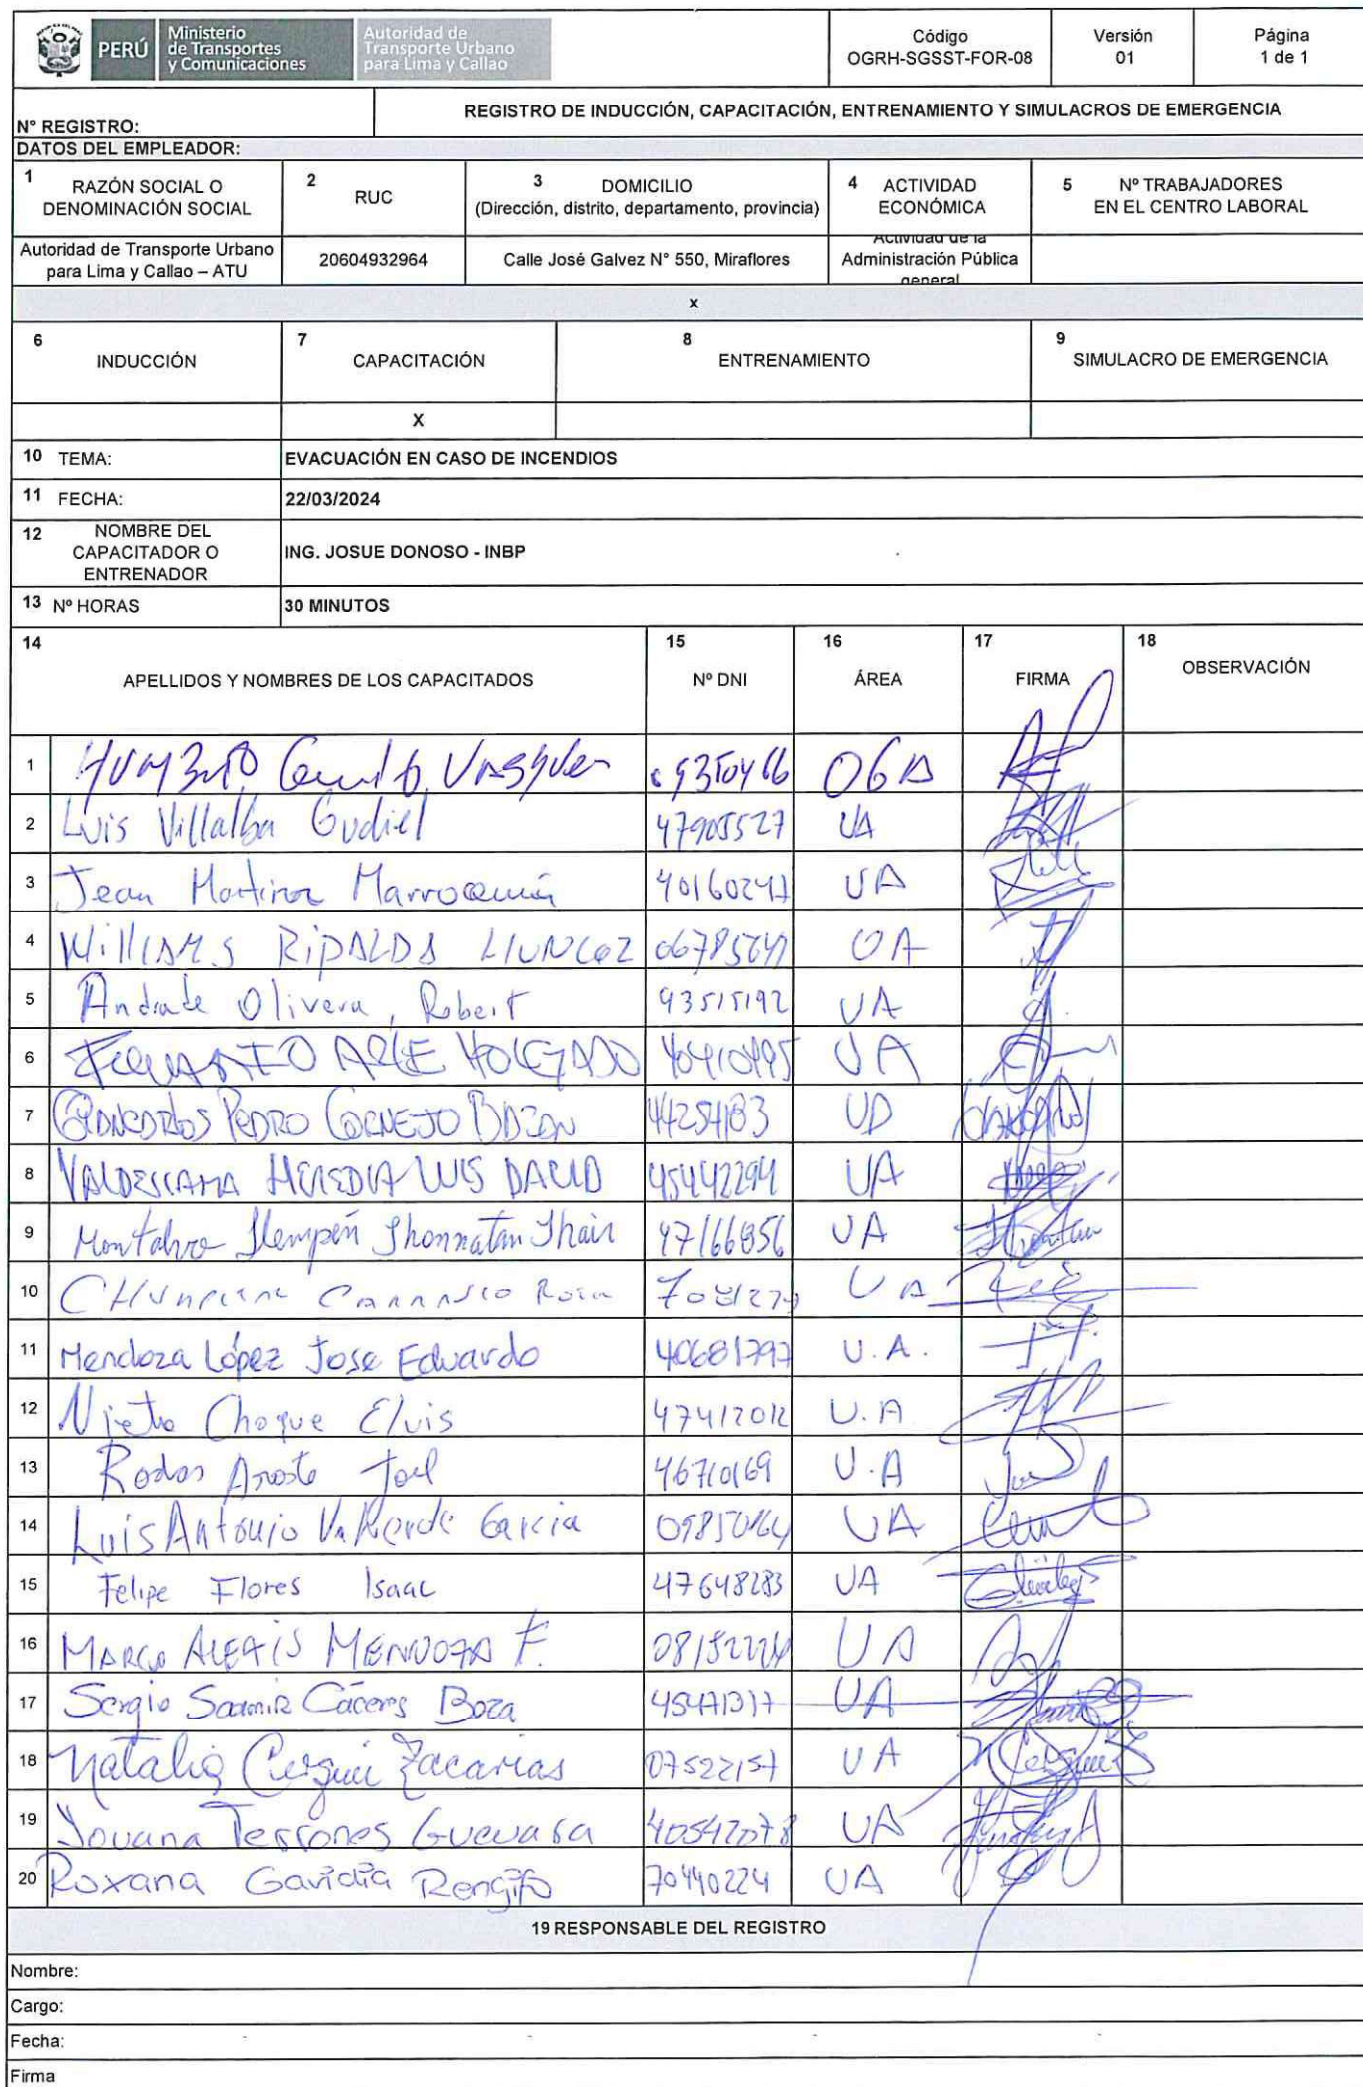 PERÚ
Ministerio
de Transportes
y Comunicaciones
Autoridad de
Transporte Urbano
para Lima y Callao
Código
OGRH-SGSST-FOR-08
Versión
01
Página
1 de 1
N° REGISTRO:
REGISTRO DE INDUCCIÓN, CAPACITACIÓN, ENTRENAMIENTO Y SIMULACROS DE EMERGENCIA
DATOS DEL EMPLEADOR:
1 RAZÓN SOCIAL O
DENOMINACIÓN SOCIAL
2 RUC
3 DOMICILIO
(Dirección, distrito, departamento, provincia)
4 ACTIVIDAD
ECONÓMICA
5 Nº TRABAJADORES
EN EL CENTRO LABORAL
Autoridad de Transporte Urbano
para Lima y Callao – ATU
20604932964
Calle José Galvez N° 550, Miraflores
Actividad de la
Administración Pública
general
x
6 INDUCCIÓN
7 CAPACITACIÓN
8 ENTRENAMIENTO
9 SIMULACRO DE EMERGENCIA
X
10 TEMA: EVACUACIÓN EN CASO DE INCENDIOS
11 FECHA: 22/03/2024
12 NOMBRE DEL
CAPACITADOR O
ENTRENADOR
ING. JOSUE DONOSO - INBP
13 Nº HORAS 30 MINUTOS
14 APELLIDOS Y NOMBRES DE LOS CAPACITADOS
15 Nº DNI
16 ÁREA
17 FIRMA
18 OBSERVACIÓN
1 OGA
2 Luis Villalba Gudiel 47905527 UA
3 Jean UA
4 Williams Ripalda OA
5 Andrade Olivera, Robert UA
6 UA
7 PEDRO CORNEJO BAZAN 44254183 UA
8 HEREDIA LUIS DAVID 45442294 UA
9 47166856 UA
10 UA
11 Mendoza López Jose Eduardo 40681797 U.A.
12 Nieto Choque Elvis 47412012 U.A
13 Rodas Joel 46710169 U.A
14 Luis Antonio Valverde Garcia UA
15 Felipe Flores Isaac 47648283 UA
16 MARCO ALEXIS MENDOZA F. UA
17 Sergio Boza 45471317 UA
18 Natalia Zacarias 07522157 UA
19 Jovana Terrones Guevara 40542078 UA
20 Roxana Gavidia Rengifo 70440224 UA
19 RESPONSABLE DEL REGISTRO
Nombre:
Cargo:
Fecha:
Firma